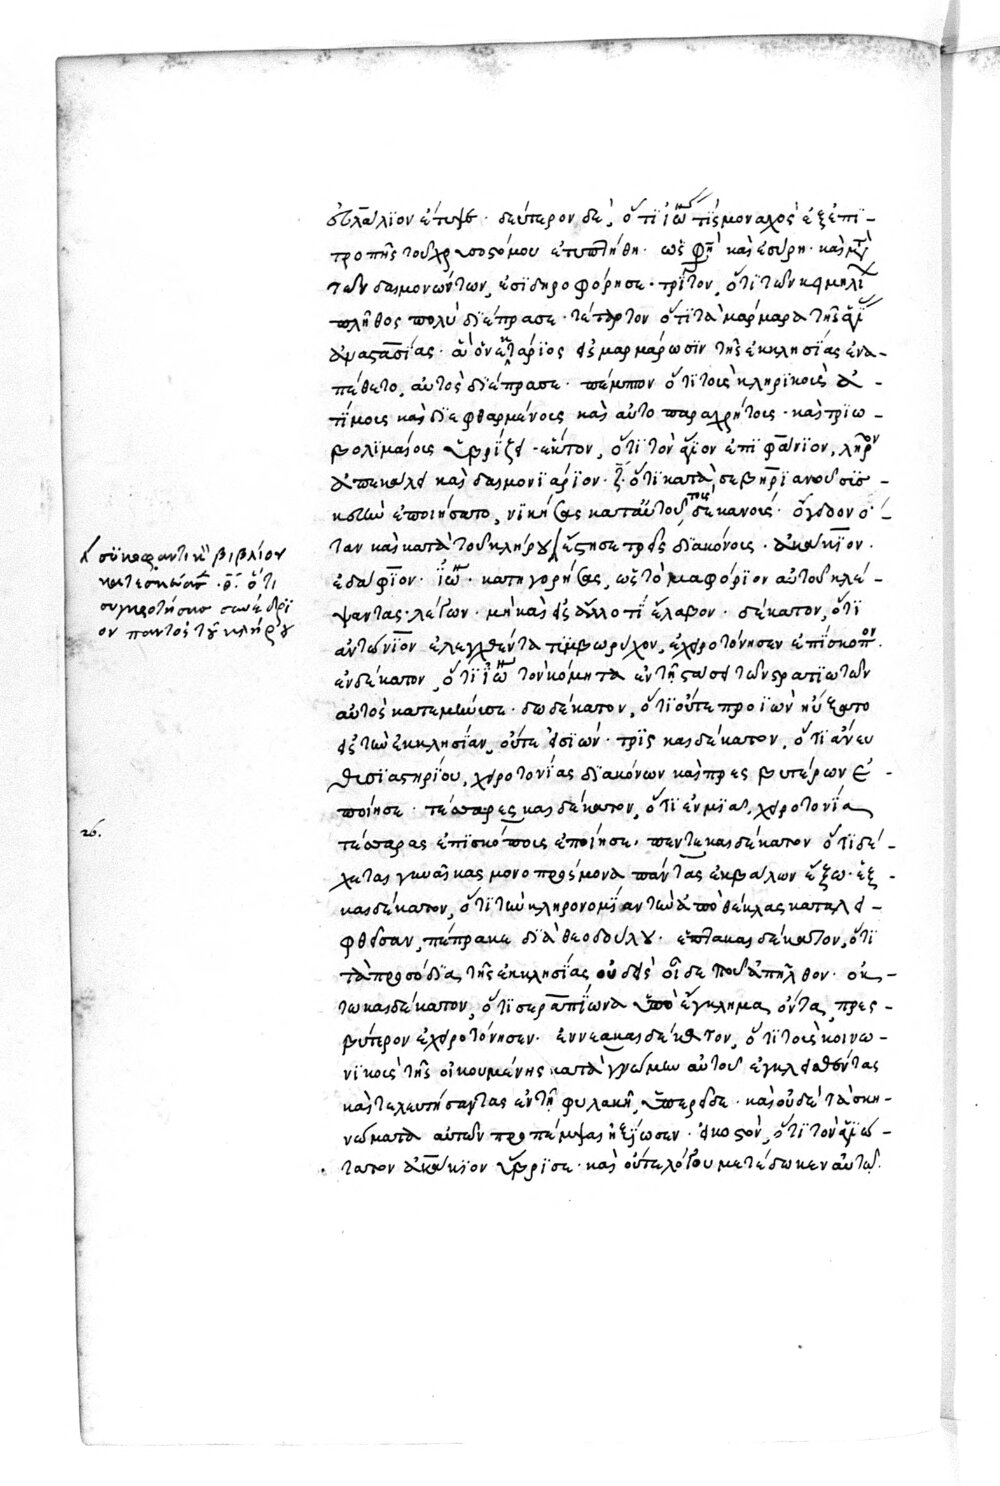 ὀυλάλϊον ἔτυψε · δεύτερον δὲ, ὅτϊ ἰω τϊς μοναχὸς ἐξ ἐπϊ-
τροπῆς τοῦ χρυσοστόμου ἐτυπτήθη · ὡς φη καὶ ἐσύρη · καὶ μετὰ
τῶν δαιμονώντων, ἐσϊδηροφόρησε · τρῖτον, ὅτϊ τῶν κειμηλϊ
πλῆθος πολὺ δϊέπρασε · τέταρτον ὅτϊ τὰ μάρμαρα τῆς ἁγϊ
ἀναστασίας · ἃ ὁ νεκτάρϊος εἰς μαρμάρωσϊν τῆς ἐκκλησίας ἐνα-
πέθετο, αὐτὸς δϊέπρασε · πέμπτον ὅτϊ τοὺς κληρϊκοὺς ἀ-
τίμους καὶ δϊεφθαρμένους καὶ αὐτοπαραχρήστους · καὶ τρϊω-
βολϊμαίους ὑβρίζει · ἕκτον, ὅτϊ τὸν ἅγϊον ἐπϊφάνϊον, λῆρον
ἀπεκάλει καὶ δαιμονϊάρϊον · ζ ὅτι κατὰ σεβηρϊανοῦ συσ-
κευὴν ἐποιήσατο, νϊκήσας κατ αὐτοῦ τοὺς δεκανούς · ὄγδοον ὅ-
ταν καὶ κατὰ τοῦ κλήρου ἔστησε τρεῖς δϊακόνους · ἀκάκϊον ·
ἐδάφϊον · ϊω · κατηγορήσας, ὡς τὸ μαφόρϊον αὐτοῦ κλέ-
ψαντας · λέγων · μὴ καὶ εἰς ἄλλο τϊ ἔλαβον · δέκατον, ὅτϊ
ἀντώνϊον ἐλεγχθέντα τϊμβωρύχον, ἐχειροτόνησεν ἐπίσκοπον ·
ἑνδέκατον, ὅτϊ ϊω τὸν κόμητα ἐν τῆ στάσει τῶν στρατϊωτῶν
αὐτὸς κατεμήνυσε · δωδέκατον, ὅτϊ οὔτε προϊὼν ηὔξατο
εἰς τὴν ἐκκλησίαν, οὔτε εἰσϊών · τρῖς καιδέκατον, ὅτϊ ἄνευ
θυσϊαστηρίου, χειροτονίας δϊακόνων καὶ πρεσβυτέρων ἐ-
ποίησε · τέσσαρες καιδέκατον, ὅτϊ ἐν μϊᾶ χειροτονία
τέσσαρας ἐπϊσκόπους ἐποίησε · πεντεκαιδέκατον ὅτϊ δέ-
χεται γυναῖκας μόνο πρὸς μόνα πάντας ἐκβάλων ἔξω · ἑξ-
καιδέκατον, ὅτϊ τὴν κληρονομϊαν τὴν ἀπὸ θέκλας καταλει-
φθεῖσαν, πέπρακε δϊὰ θεοδούλου · ἑπτακαιδέκατον, ὅτϊ
τὰ προσόδϊα τῆς ἐκκλησίας οὐδεὶς οἶδε ποῦ ἀπῆλθον · ὀκ-
τωκαιδέκατον, ὅτϊ σεραπίωνα ὑπὸ ἔγκλημα ὄντα, πρεσ-
βύτερον ἐχειροτόνησεν · ἐννεακαιδέκατον, ὅτϊ τοὺς κοινω-
νϊκοὺς τῆς οἰκουμένης κατὰ γνώμην αὐτοῦ ἐγκλεισθέντας
καὶ τελευτήσαντας ἐν τῆ φυλακῆ, ὑπερεῖδε · καὶ οὐδὲ τὰ σκη-
νώματα αὐτῶν προπέμψαι ἠξίωσεν · εἰκοστὸν, ὅτϊ τὸν ἁγϊώ-
τατον ἀκάκϊον ὕβρϊσε · καὶ οὔτε λόγου μετέδωκεν αὐτῷ.
συκοφαντικὸν βιβλίον
κατεσκεύασ · θ · ὅτι
συγκροτήσας συνέδρϊ
ον παντὸς τοῦ κλήρου
26.